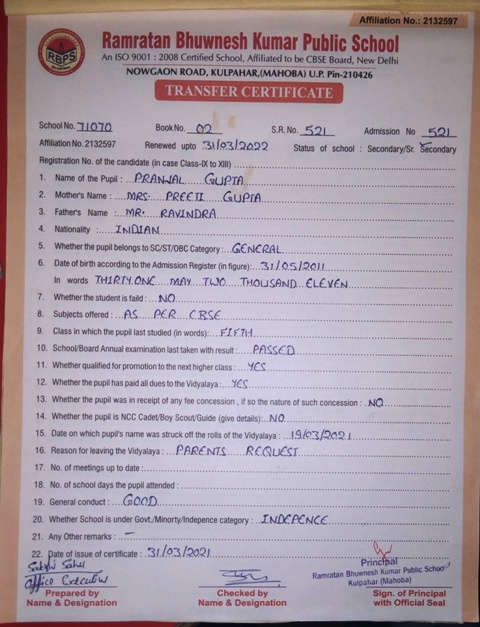 Affiliation No.: 2132597
RBPS
Ramratan Bhuwnesh Kumar Public School
An ISO 9001 : 2008 Certified School, Affiliated to be CBSE Board, New Delhi
NOWGAON ROAD, KULPAHAR,(MAHOBA) U.P. Pin-210426
TRANSFER CERTIFICATE
School No. 71070 Book No. 02 S.R. No. 521 Admission No 521
Affiliation No. 2132597 Renewed upto 31/03/2022 Status of school : Secondary/Sr. Secondary
Registration No. of the candidate (in case Class-IX to XII)
1. Name of the Pupil : PRANJAL GUPTA
2. Mother's Name : MRS. PREETI GUPTA
3. Father's Name : MR. RAVINDRA
4. Nationality : INDIAN
5. Whether the pupil belongs to SC/ST/OBC Category : GENERAL
6. Date of birth according to the Admission Register (in figure) : 31/05/2011
In words THIRTY ONE MAY TWO THOUSAND ELEVEN
7. Whether the student is faild : NO
8. Subjects offered : AS PER CBSE
9. Class in which the pupil last studied (in words) : FIFTH
10. School/Board Annual examination last taken with result : PASSED
11. Whether qualified for promotion to the next higher class : YES
12. Whether the pupil has paid all dues to the Vidyalaya : YES
13. Whether the pupil was in receipt of any fee concession , if so the nature of such concession : NO
14. Whether the pupil is NCC Cadet/Boy Scout/Guide (give details) : NO
15. Date on which pupil's name was struck off the rolls of the Vidyalaya : 19/03/2021
16. Reason for leaving the Vidyalaya : PARENTS REQUEST
17. No. of meetings up to date :
18. No. of school days the pupil attended :
19. General conduct : GOOD
20. Whether School is under Govt./Minorty/Indepence category : INDEPENCE
21. Any Other remarks : –
22. Date of issue of certificate : 31/03/2021
Office Executive
Principal
Ramratan Bhuwnesh Kumar Public School
Kulpahar (Mahoba)
Prepared by
Name & Designation
Checked by
Name & Designation
Sign. of Principal
with Official Seal